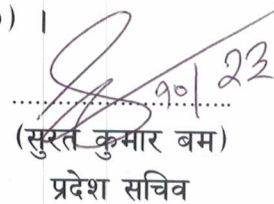 ) ।
१०/ 23
(सुरत कुमार बम)
प्रदेश सचिव